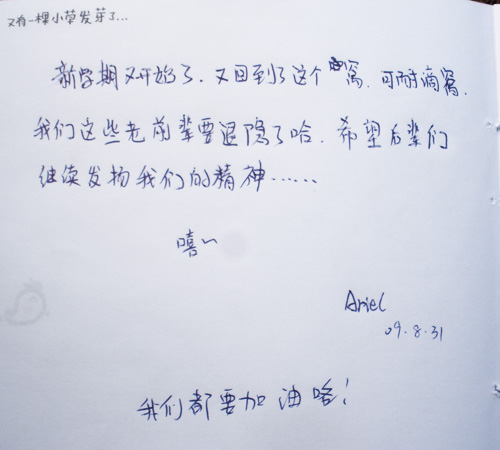 又有一棵小草发芽了...
新学期又开始了.又回到了这个窝.可耐滴窝.
我们这些老前辈要退隐了哈.希望后辈们
继续发扬我们的精神......
嘻~
Ariel
09.8.31
我们都要加油咯！